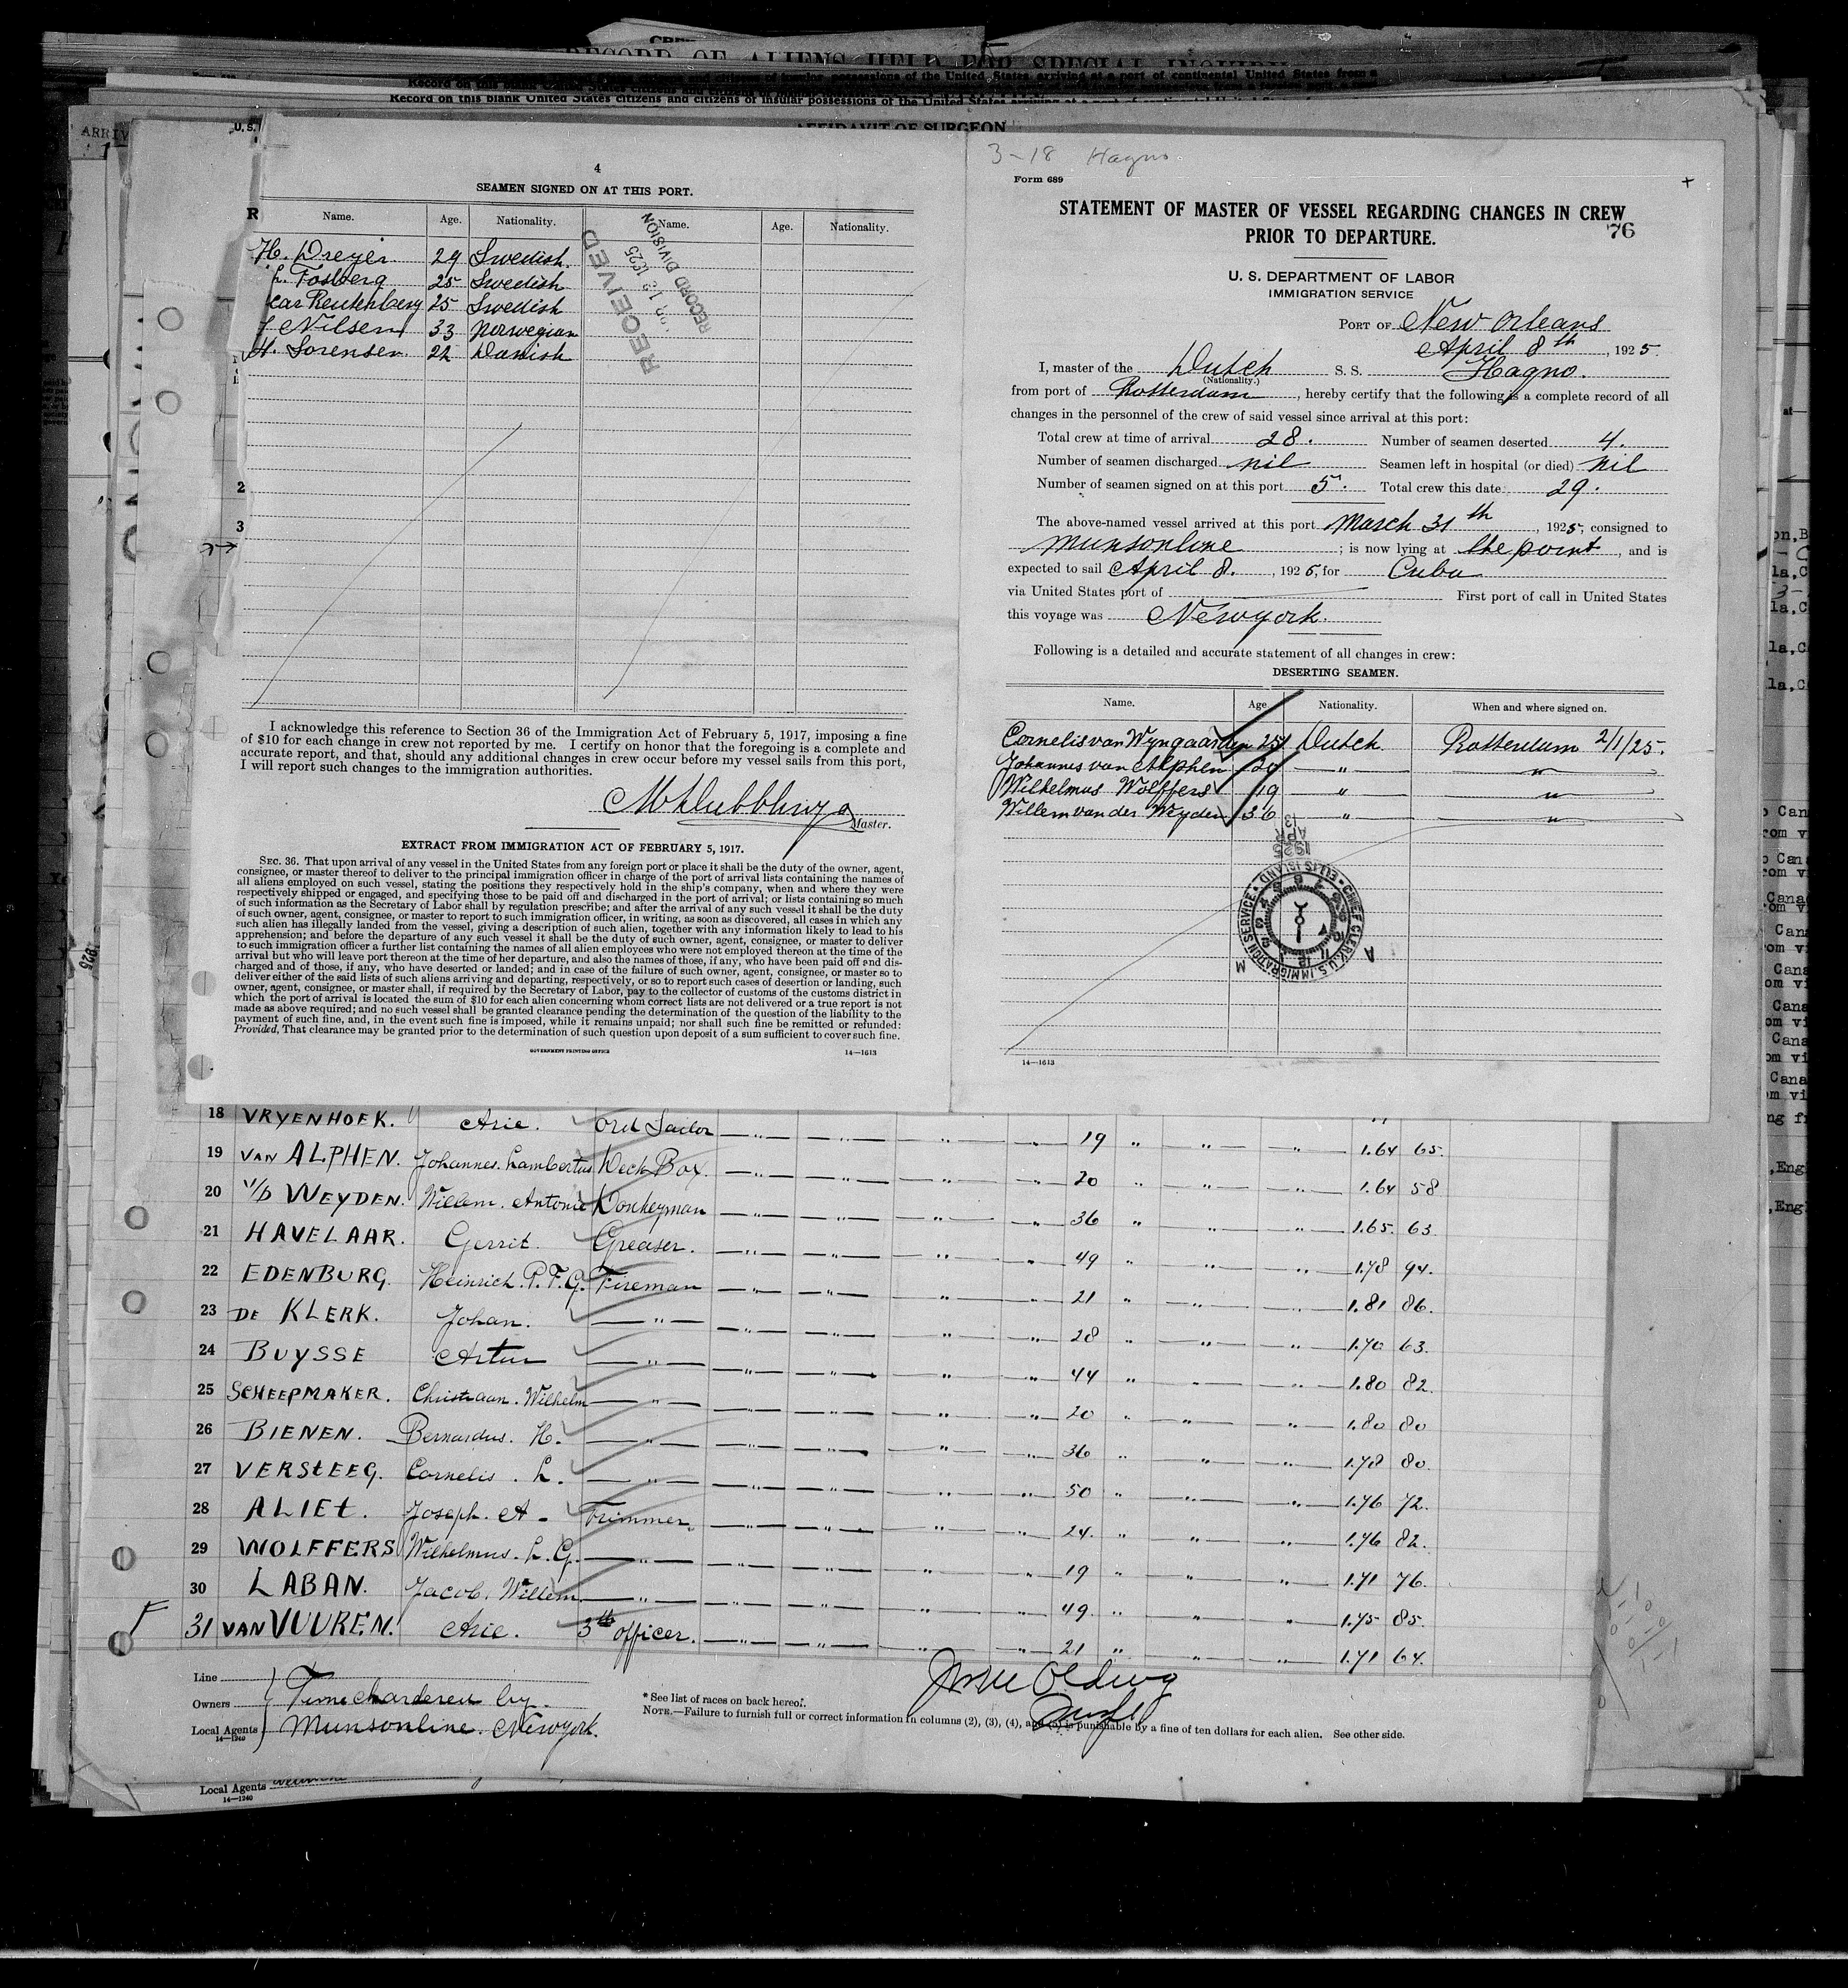 RECORD OF ALIENS HELD FOR SPECIAL INQUIRY
Record on this blank United States citizens and citizens of insular possessions of the United States arriving at a port of continental United States from a
AFFIDAVIT OF SURGEON
ARRIV
U. S.
4
SEAMEN SIGNED ON AT THIS PORT.
Name. Age. Nationality. Name. Age. Nationality.
H. Dreyer 29 Swedish.
Fosberg 25 Swedish
car Reutenberg 25 Swedish
Nilsen 33 Norwegian
H. Sorensen 22 Danish
RECEIVED
1925
RECORD DIVISION
R
2
3
I acknowledge this reference to Section 36 of the Immigration Act of February 5, 1917, imposing a fine
of $10 for each change in crew not reported by me. I certify on honor that the foregoing is a complete and
accurate report, and that, should any additional changes in crew occur before my vessel sails from this port,
I will report such changes to the immigration authorities.
Master.
EXTRACT FROM IMMIGRATION ACT OF FEBRUARY 5, 1917.
SEC. 36. That upon arrival of any vessel in the United States from any foreign port or place it shall be the duty of the owner, agent,
consignee, or master thereof to deliver to the principal immigration officer in charge of the port of arrival lists containing the names of
all aliens employed on such vessel, stating the positions they respectively hold in the ship's company, when and where they were
respectively shipped or engaged, and specifying those to be paid off and discharged in the port of arrival; or lists containing so much
of such information as the Secretary of Labor shall by regulation prescribe; and after the arrival of any such vessel it shall be the duty
of such owner, agent, consignee, or master to report to such immigration officer, in writing, as soon as discovered, all cases in which any
such alien has illegally landed from the vessel, giving a description of such alien, together with any information likely to lead to his
apprehension; and before the departure of any such vessel it shall be the duty of such owner, agent, consignee, or master to deliver
to such immigration officer a further list containing the names of all alien employees who were not employed thereon at the time of the
arrival but who will leave port thereon at the time of her departure, and also the names of those, if any, who have been paid off and dis-
charged and of those, if any, who have deserted or landed; and in case of the failure of such owner, agent, consignee, or master so to
deliver either of the said lists of such aliens arriving and departing, respectively, or so to report such cases of desertion or landing, such
owner, agent, consignee, or master shall, if required by the Secretary of Labor, pay to the collector of customs of the customs district in
which the port of arrival is located the sum of $10 for each alien concerning whom correct lists are not delivered or a true report is not
made as above required; and no such vessel shall be granted clearance pending the determination of the question of the liability to the
payment of such fine, and, in the event such fine is imposed, while it remains unpaid; nor shall such fine be remitted or refunded:
Provided, That clearance may be granted prior to the determination of such question upon deposit of a sum sufficient to cover such fine.
GOVERNMENT PRINTING OFFICE 14—1613
3-18 Hagno
Form 689
STATEMENT OF MASTER OF VESSEL REGARDING CHANGES IN CREW
PRIOR TO DEPARTURE.
76
U. S. DEPARTMENT OF LABOR
IMMIGRATION SERVICE
PORT OF New Orleans
April 8th, 1925.
I, master of the Dutch S. S. Hagno.
(Nationality.)
from port of Rotterdam, hereby certify that the following is a complete record of all
changes in the personnel of the crew of said vessel since arrival at this port:
Total crew at time of arrival 28. Number of seamen deserted 4.
Number of seamen discharged nil Seamen left in hospital (or died) nil
Number of seamen signed on at this port 5. Total crew this date 29.
The above-named vessel arrived at this port March 31th, 1925, consigned to
Munsonline; is now lying at the point, and is
expected to sail April 8., 1925, for Cuba
via United States port of First port of call in United States
this voyage was Newyork.
Following is a detailed and accurate statement of all changes in crew:
DESERTING SEAMEN.
Name. Age Nationality. When and where signed on.
Cornelis van Wyngaarden 25 Dutch Rotterdam 2/1/25.
Johannes van Alphen 20 " "
Wilhelmus Wolffers 19 " "
Willem van der Weyden 36 " "
1925 APR 13
CHIEF CLERK, U. S. IMMIGRATION SERVICE ELLIS ISLAND
A M
14—1613
18 VRYENHOEK. Arie. Ord Sailor " " " " 19 " " " 1.64 65.
19 VAN ALPHEN. Johannes. Lambertus Deck Boy. " " " " 20 " " " 1.64 58
20 V/D WEYDEN. Willem. Antonie Donkeyman " " " " 36 " " " 1.65. 63.
21 HAVELAAR. Gerrit. Greaser. " " " " 49 " " " 1.78 94.
22 EDENBURG. Heinrich. P. F. G. Fireman " " " " 21 " " " 1.81 86.
23 DE KLERK. Johan. " " " " " 28 " " " 1.70 63.
24 BUYSSE Artur " " " " " 44 " " " 1.80 82.
25 SCHEEPMAKER. Christiaan. Wilhelm " " " " " 20 " " " 1.80 80
26 BIENEN. Bernardus. H. " " " " " 36 " " " 1.78 80.
27 VERSTEEG. Cornelis. L. " " " " " 50 " " " 1.76 72.
28 ALIET. Joseph. A. Trimmer. " " " " 24. " " " 1.76 82.
29 WOLFFERS Wilhelmus. L. G. " " " " " 19 " " " 1.71 76.
30 LABAN. Jacob. Willem. " " " " " 49. " " " 1.75 85.
31 VAN VUUREN. Arie. 3th officer. " " " " 21 " " " 1.71 64.
Line
Owners Timecharteren by.
Local Agents Munsonline. Newyork.
14—1240
* See list of races on back hereof.
NOTE.—Failure to furnish full or correct information in columns (2), (3), (4), and (5) is punishable by a fine of ten dollars for each alien. See other side.
Local Agents
14—1240